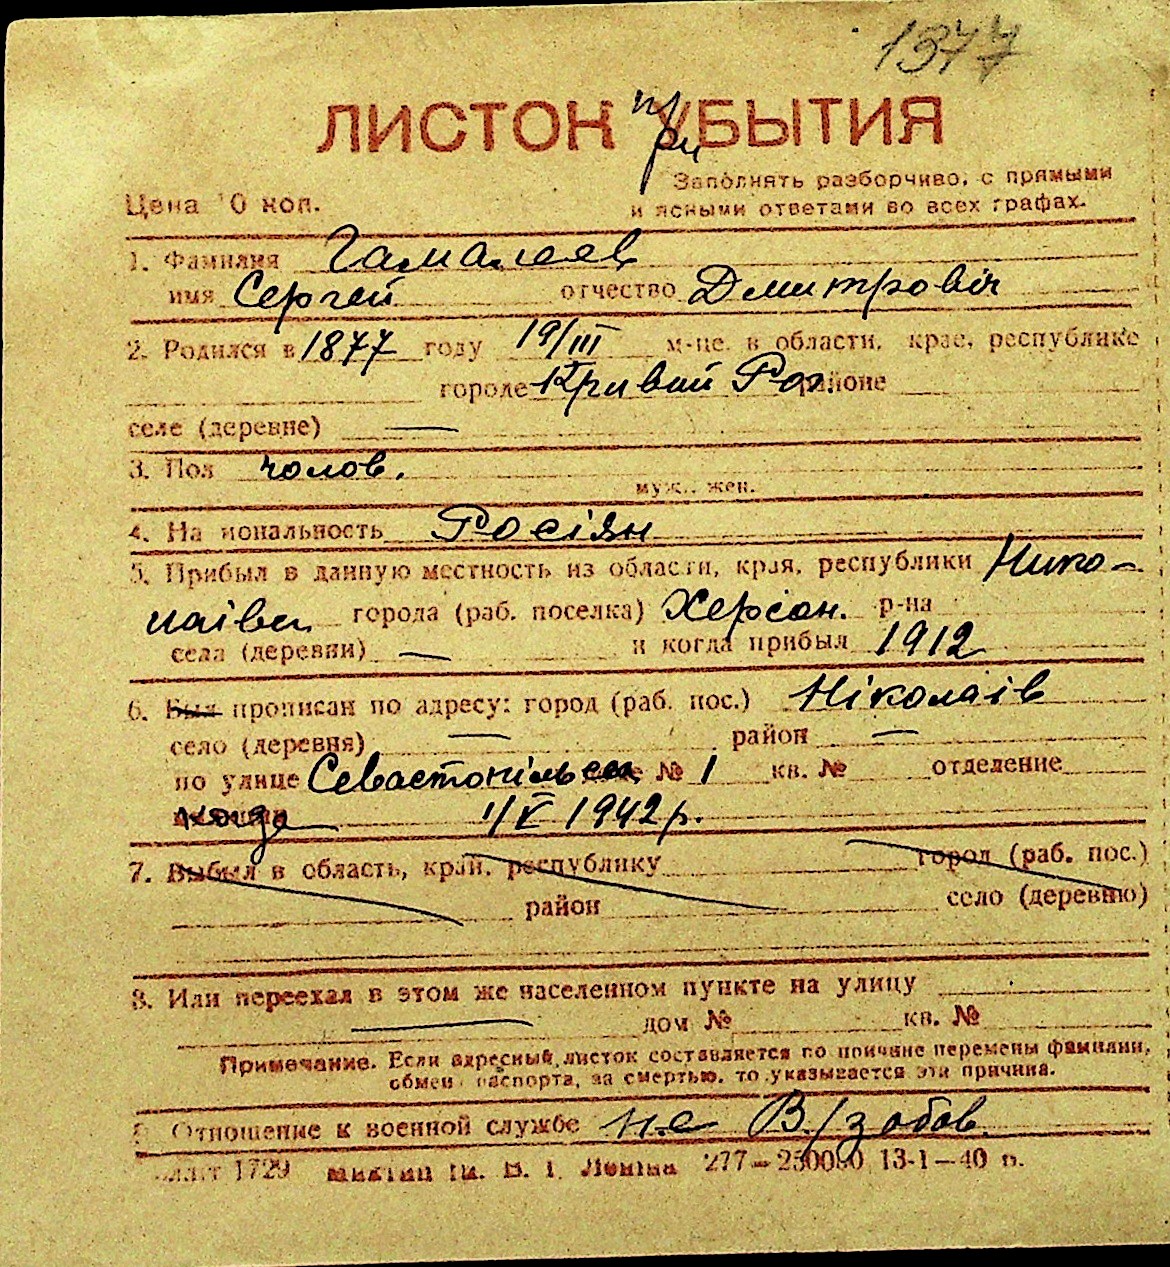 1377
ЛИСТОК УБЫТИЯ
при
Заполнять разборчиво, с прямыми
Цена 10 коп.
и ясными ответами во всех графах.
1. Фамилия Гамалеев
имя Сергей отчество Дмитрович
2. Родился в 1877 году 19/III м-це в области, крае, республике
городе Кривий Рог районе
селе (деревне) —
3. Пол чолов.
муж., жен.
4. Национальность Росіян
5. Прибыл в данную местность из области, края, республики Нико-
лаівск. города (раб. поселка) Херсон. р-на
села (деревни) — и когда прибыл 1912
6. Был прописан по адресу: город (раб. пос.) Ніколаів
село (деревня) — район —
по улице Севастопільск № 1 кв. № отделение
когда 1/V 1942 р.
7. Выбыл в область, край, республику город (раб. пос.)
район село (деревню)
8. Или переехал в этом же населенном пункте на улицу
— дом № кв. №
Примечание. Если адресный листок составляется по причине перемены фамилии,
обмена паспорта, за смертью, то указывается эта причина.
9. Отношение к военной службе не В/зобов.
1729 им. В. І. Леніна 277—250000 13-1—40 р.